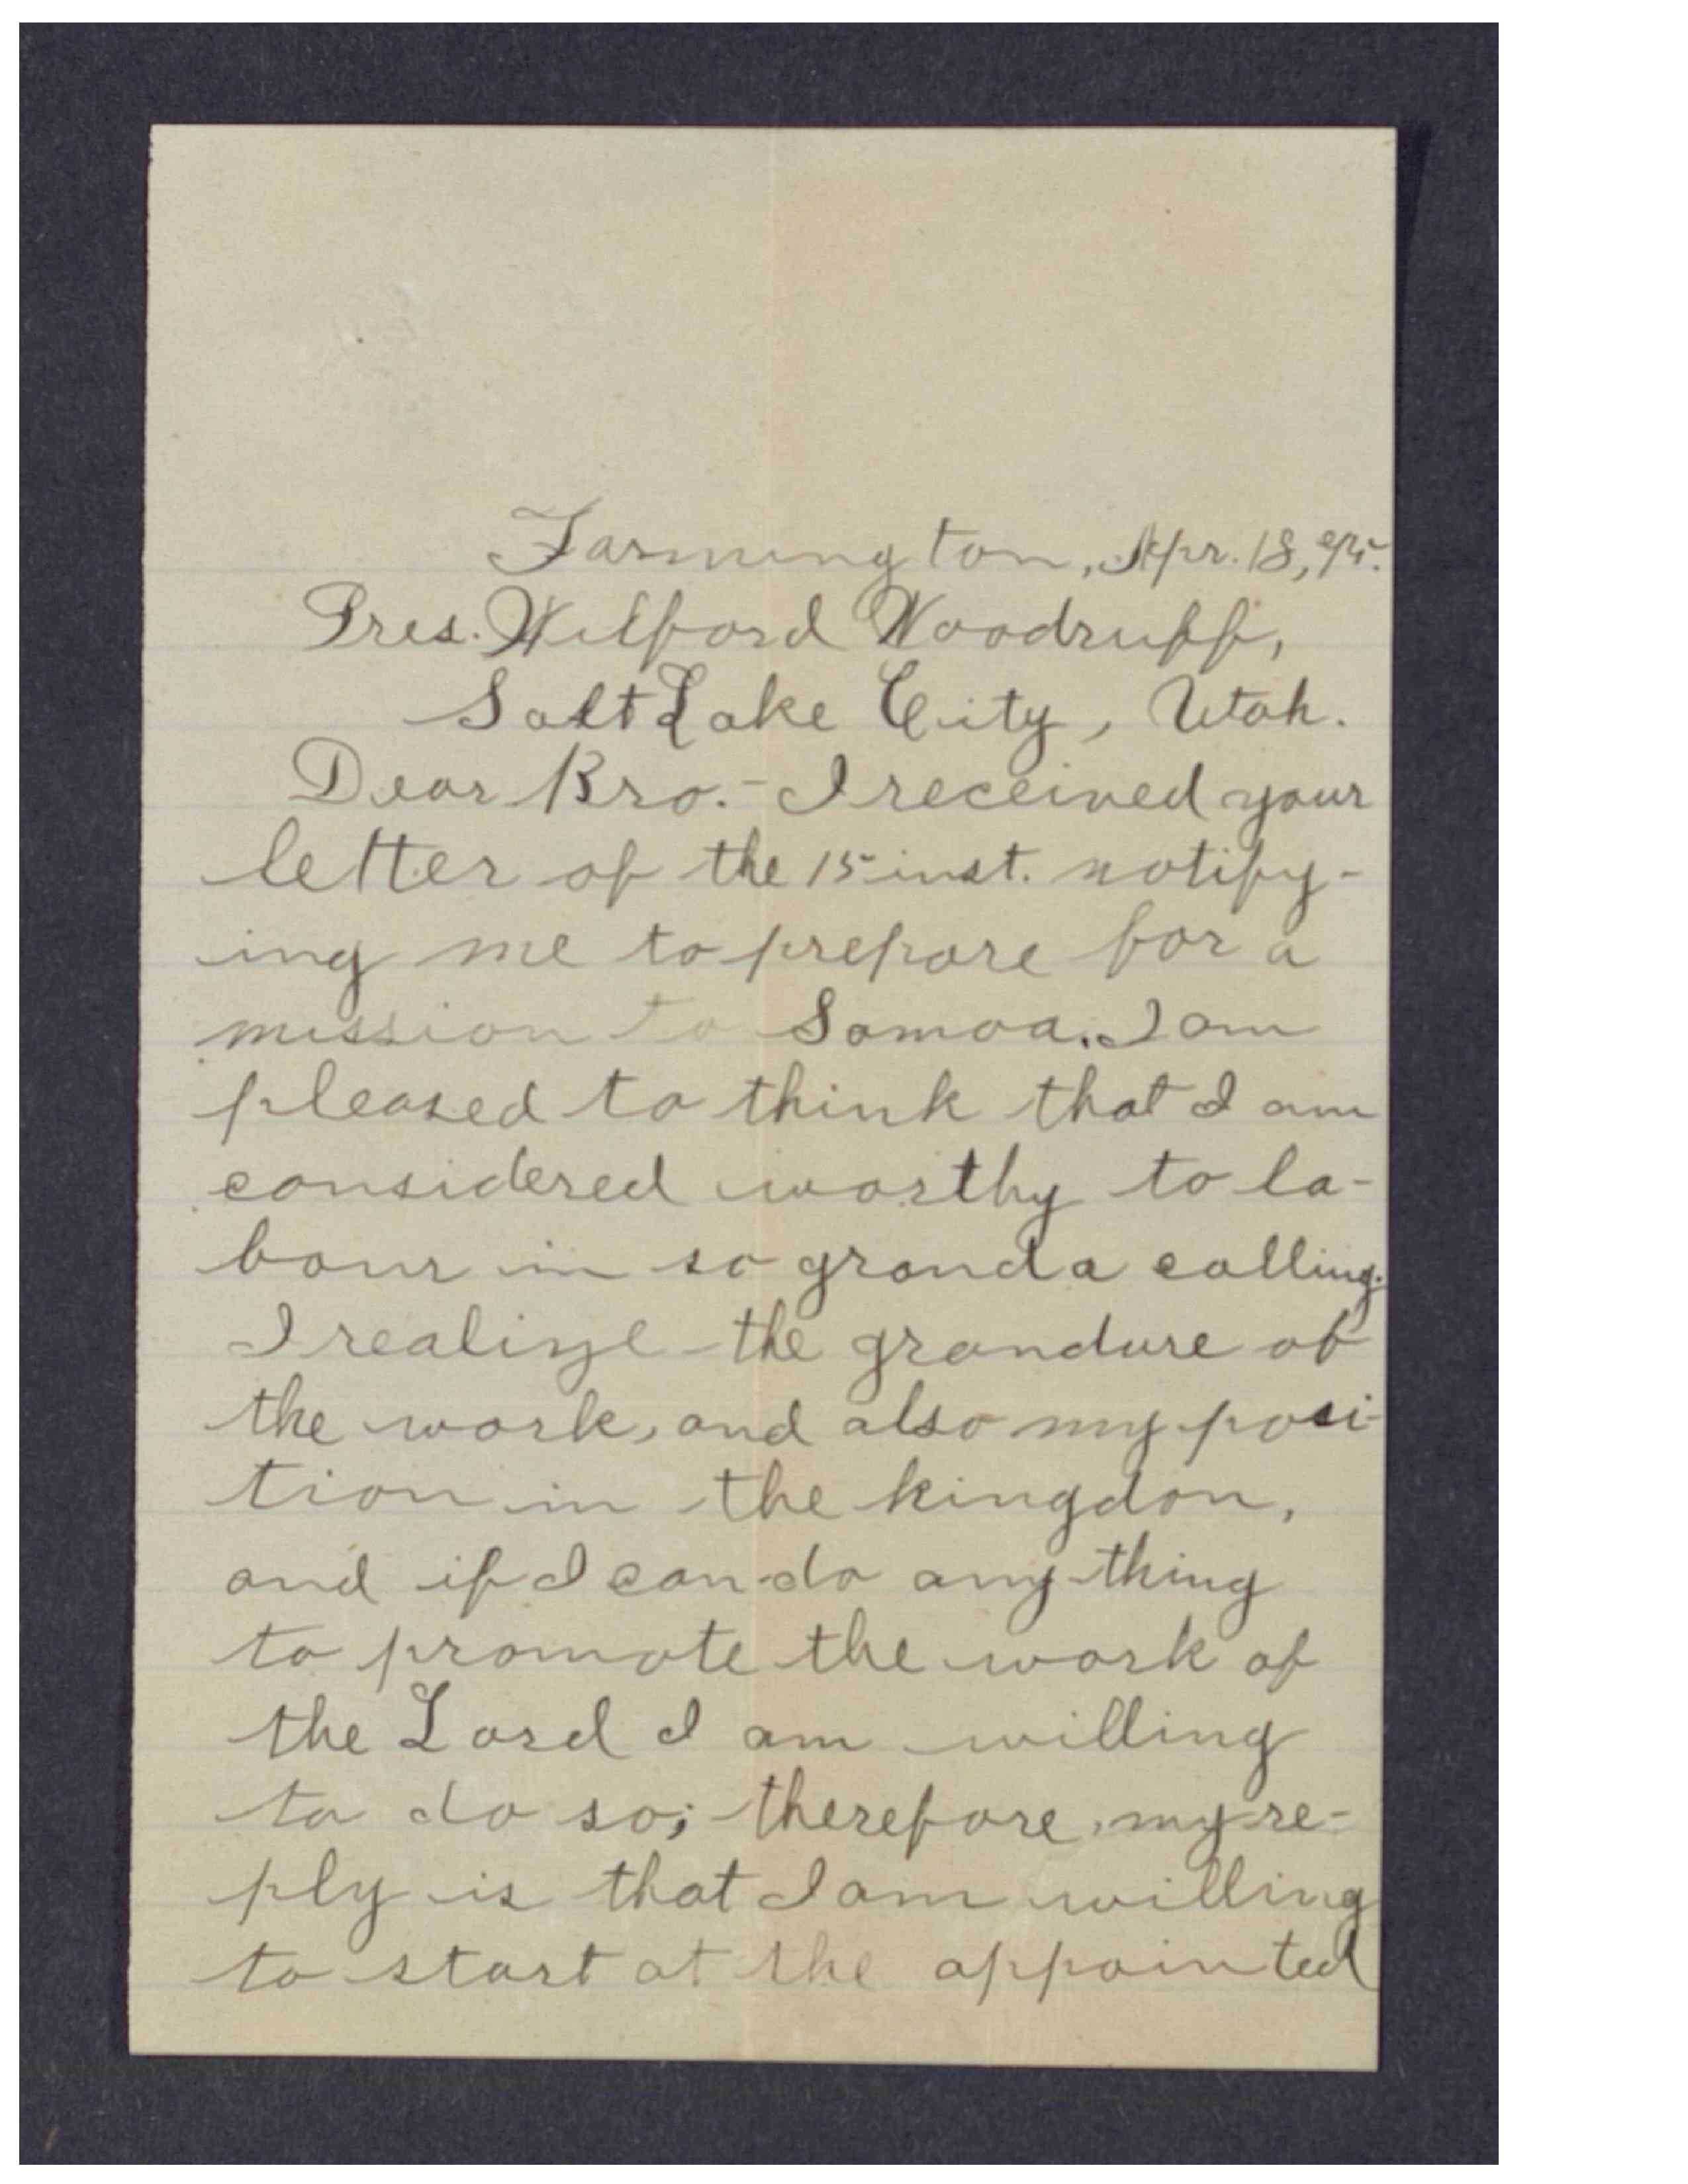 Farmington, Apr. 18, 95.
Pres. Wilford Woodruff,
Salt Lake City, Utah.
Dear Bro.- I received your
letter of the 15 inst. notify-
ing me to prepare for a
mission to Samoa. I am
pleased to think that I am
considered worthy to la-
bour in so grand a calling.
I realize the grandure of
the work, and also my posi-
tion in the kingdon,
and if I can do any thing
to promote the work of
the Lord I am willing
to do so; therefore, my re-
ply is that I am willing
to start at the appointed